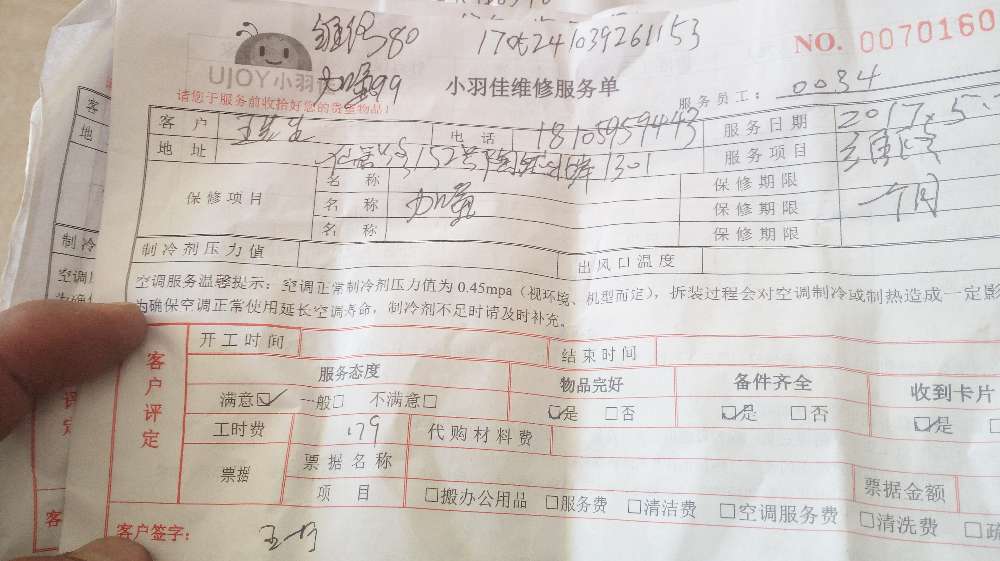 维修80 1705241039261153
NO. 0070160
UJOY小羽 加氟99 小羽佳维修服务单
请您于服务前收拾好您的贵重物品! 服务员工: 0034
客户 王先生 电话 18105959443 服务日期 2017.5
地址 152号 1301 服务项目
保修项目 名称 保修期限
名称 加氟 保修期限 一个月
名称 保修期限
制冷剂压力值 出风口温度
空调服务温馨提示: 空调正常制冷剂压力值为 0.45mpa (视环境、机型而定), 拆装过程会对空调制冷或制热造成一定影
为确保空调正常使用延长空调寿命, 制冷剂不足时请及时补充。
客户评定
开工时间 结束时间
服务态度 物品完好 备件齐全 收到卡片
满意☑ 一般□ 不满意□ ☑是 □否 ☑是 □否 ☑是 □
工时费 179 代购材料费
票据 票据名称 票据金额
项目 □搬办公用品 □服务费 □清洁费 □空调服务费 □清洗费 □疏
客户签字:
客
地
制冷
空调